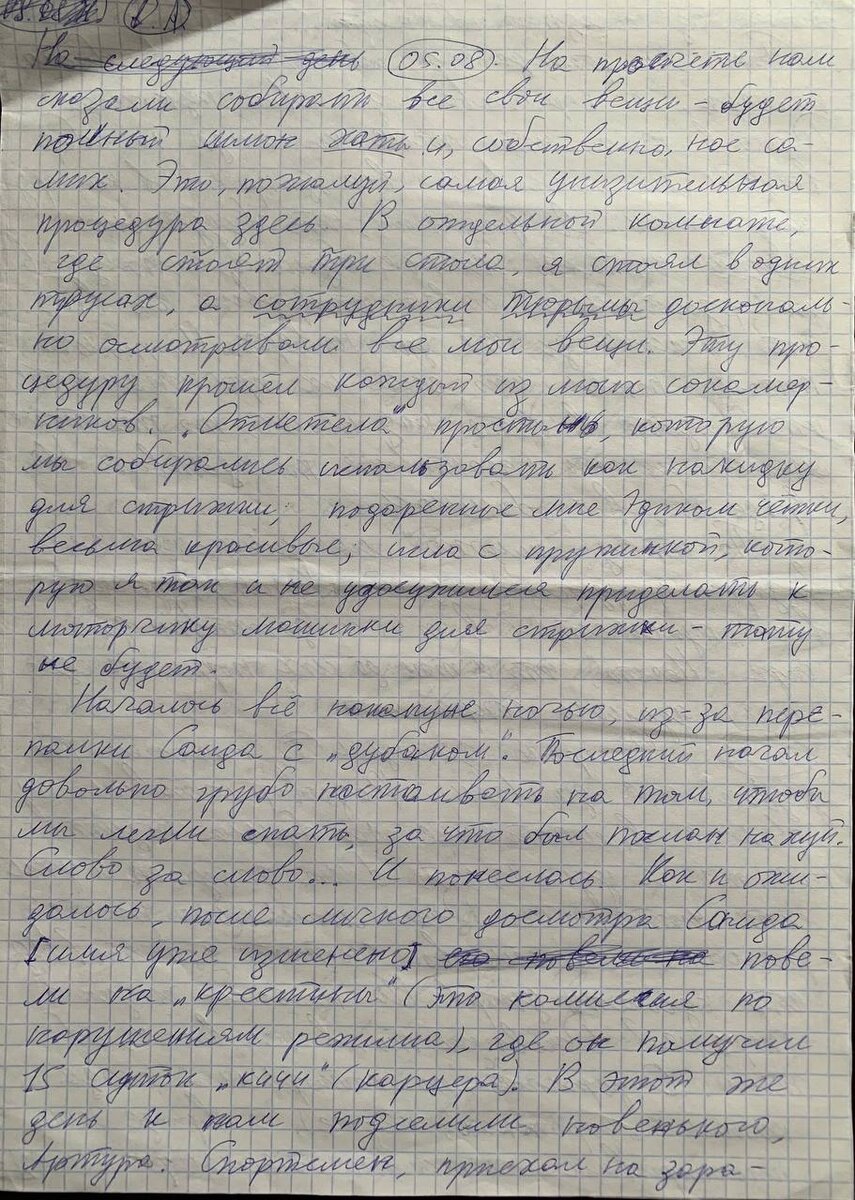 05.08 В.А.
На следующий день 05.08. На просчёте нам
сказали собирать все свои вещи – будет
полный шмон хаты и, собственно, нас са-
мих. Это, пожалуй, самая унизительная
процедура здесь. В отдельной комнате,
где стоят три стола, я стоял в одних
трусах, а сотрудники тюрьмы доскональ-
но осматривали все мои вещи. Эту про-
цедуру прошёл каждый из моих сокамер-
ников. „Отметела" простынь, которую
мы собирались использовать как накидку
для стрижки; подаренные мне Эдиком чётки,
весьма красивые; игла с пружинкой, кото-
рую я так и не удосужился приделать к
моторчику машинки для стрижки – тату
не будет.
Началось всё накануне ночью, из-за пере-
палки Саида с „дубаком". Последний начал
довольно грубо настаивать на том, чтобы
мы легли спать, за что был послан нахуй.
Слово за слово... И понеслась. Как и ожи-
далось, после личного досмотра Саида
[имя уже изменено] его повели на пове-
ли на „крестины" (это комиссия по
нарушениям режима), где он получил
15 суток „кичи" (карцера). В этот же
день к нам подселили новенького,
Артура. Спортсмен, приехал на зара-